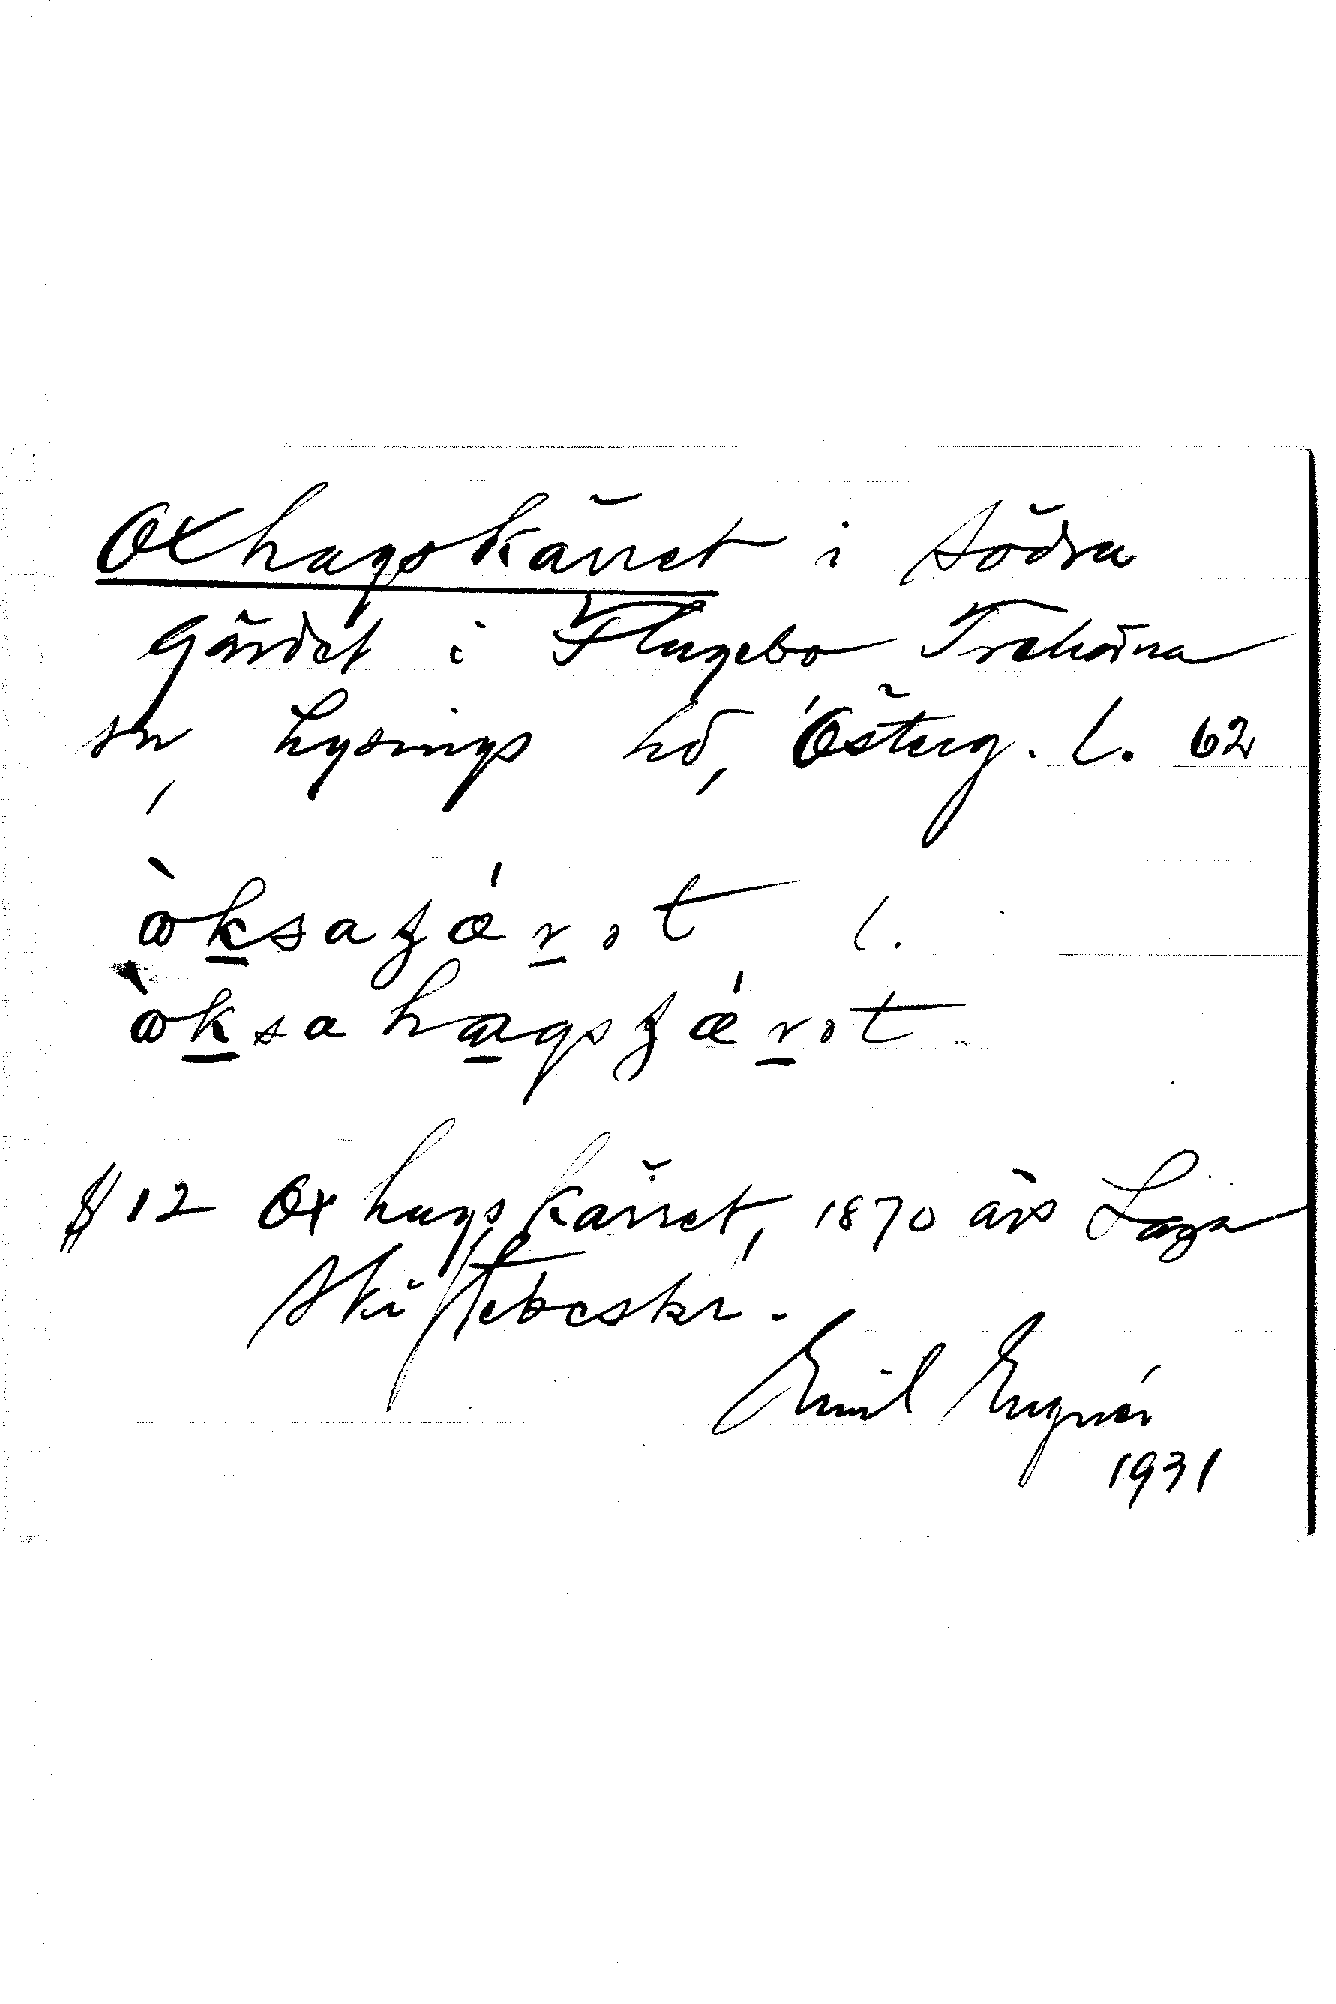 Oxhagskärret i södra
gärdet i Flugebo Trehörna
sn, Lysings hd, Österg. l. 62
ὼksaʒǽrət l.
ὼksahagsʒǽrət
§ 12 Oxhagskärret, 1870 års Laga
Skiftebeskr.
Emil
1931